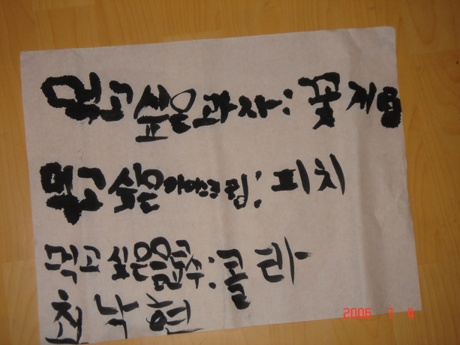 먹고싶은과자: 꽃게랑
먹고싶은아이스크림: 피치
먹고싶은음료수: 콜라
최낙현
2006 1 4